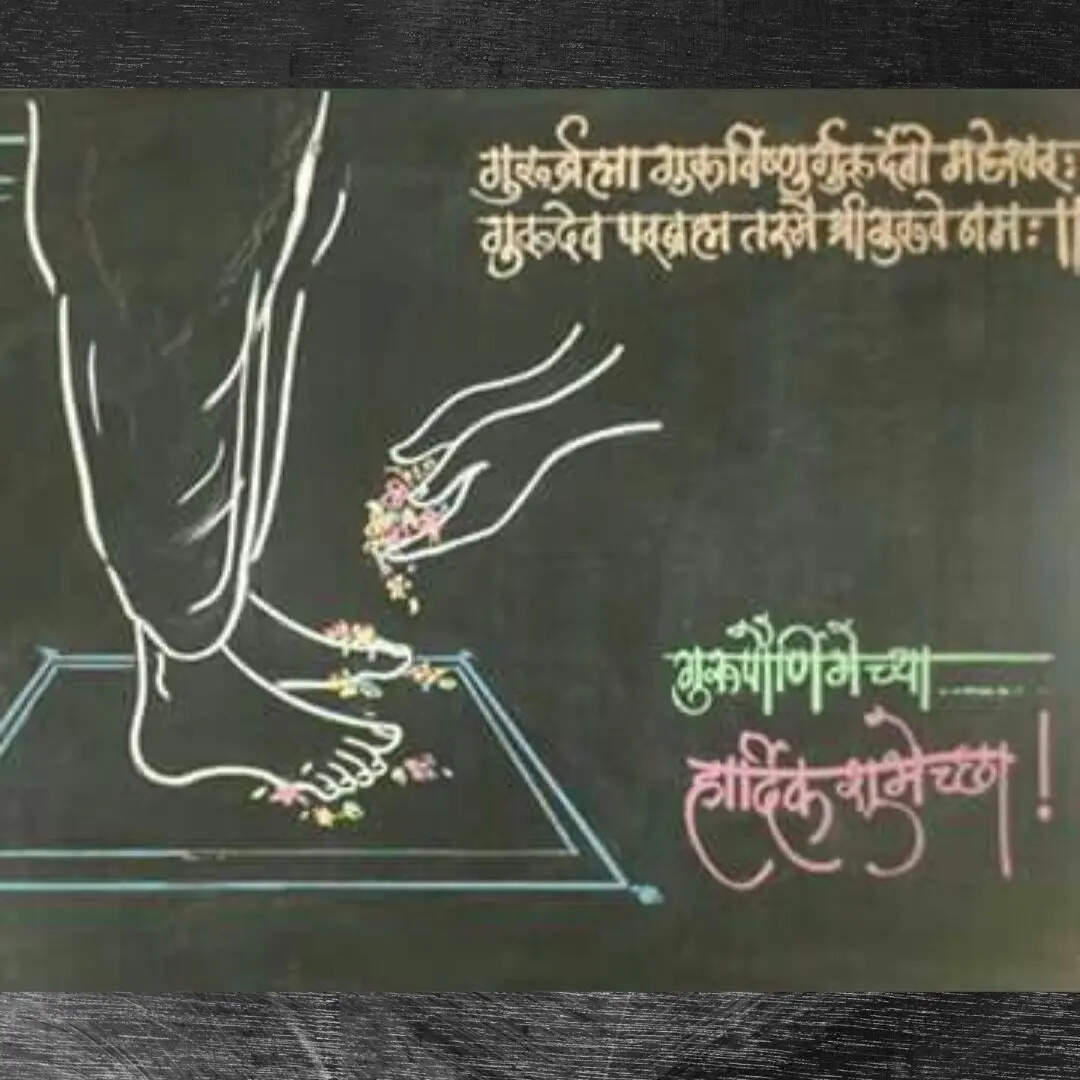 गुरुर्ब्रह्मा गुरुर्विष्णुर्गुरुर्देवो महेश्वरः
गुरुदेव परब्रह्म तस्मै श्रीगुरुवे नमः ॥
गुरुपौर्णिमेच्या ........
हार्दिक शुभेच्छा !